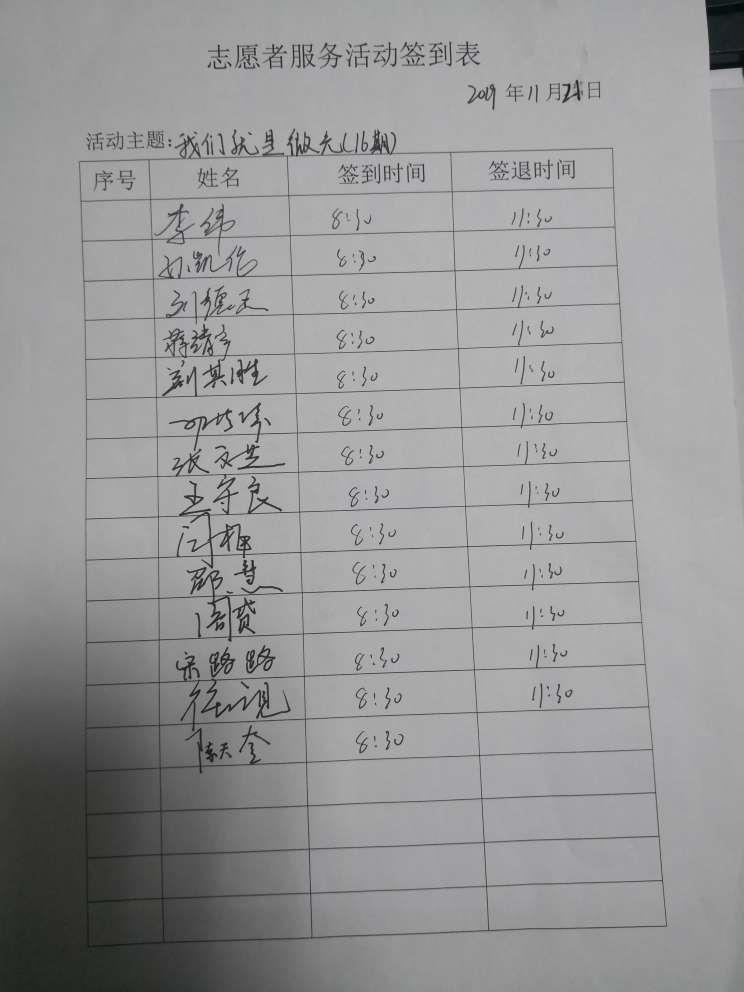 志愿者服务活动签到表
2019年11月日
活动主题:我们就是微光(16期)
序号 姓名 签到时间 签退时间
李纬 8:30 11:30
孙凯伦 8:30 11:30
刘德天 8:30 11:30
蒋靖宇 8:30 11:30
刘其胜 8:30 11:30
8:30 11:30
张文芝 8:30 11:30
王守良 8:30 11:30
闫柙 8:30 11:30
邵慧 8:30 11:30
周赞 8:30 11:30
宋路路 8:30 11:30
8:30 11:30
陈天奎 8:30